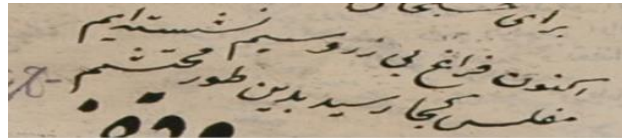 برای
اکنون فراغ بی زر و سیم نشسته‌ایم
مفلس کجا رسید بدین طور محتشم